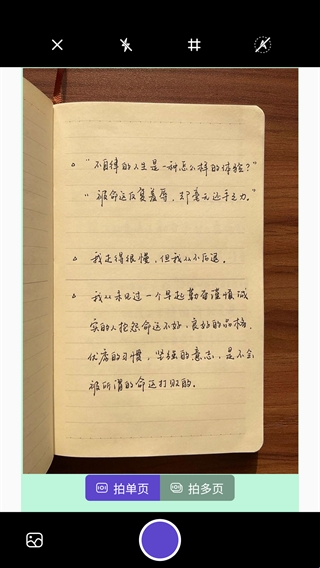 "不自律的人生是一种怎么样的体验？"
"被命运反复羞辱，却毫无还手之力。"
我走得很慢，但我从不后退。
我从未见过一个早起勤奋谨慎诚
实的人抱怨命运不好，良好的品格，
优秀的习惯，坚强的意志，是不会
被所谓的命运打败的。
拍单页
拍多页